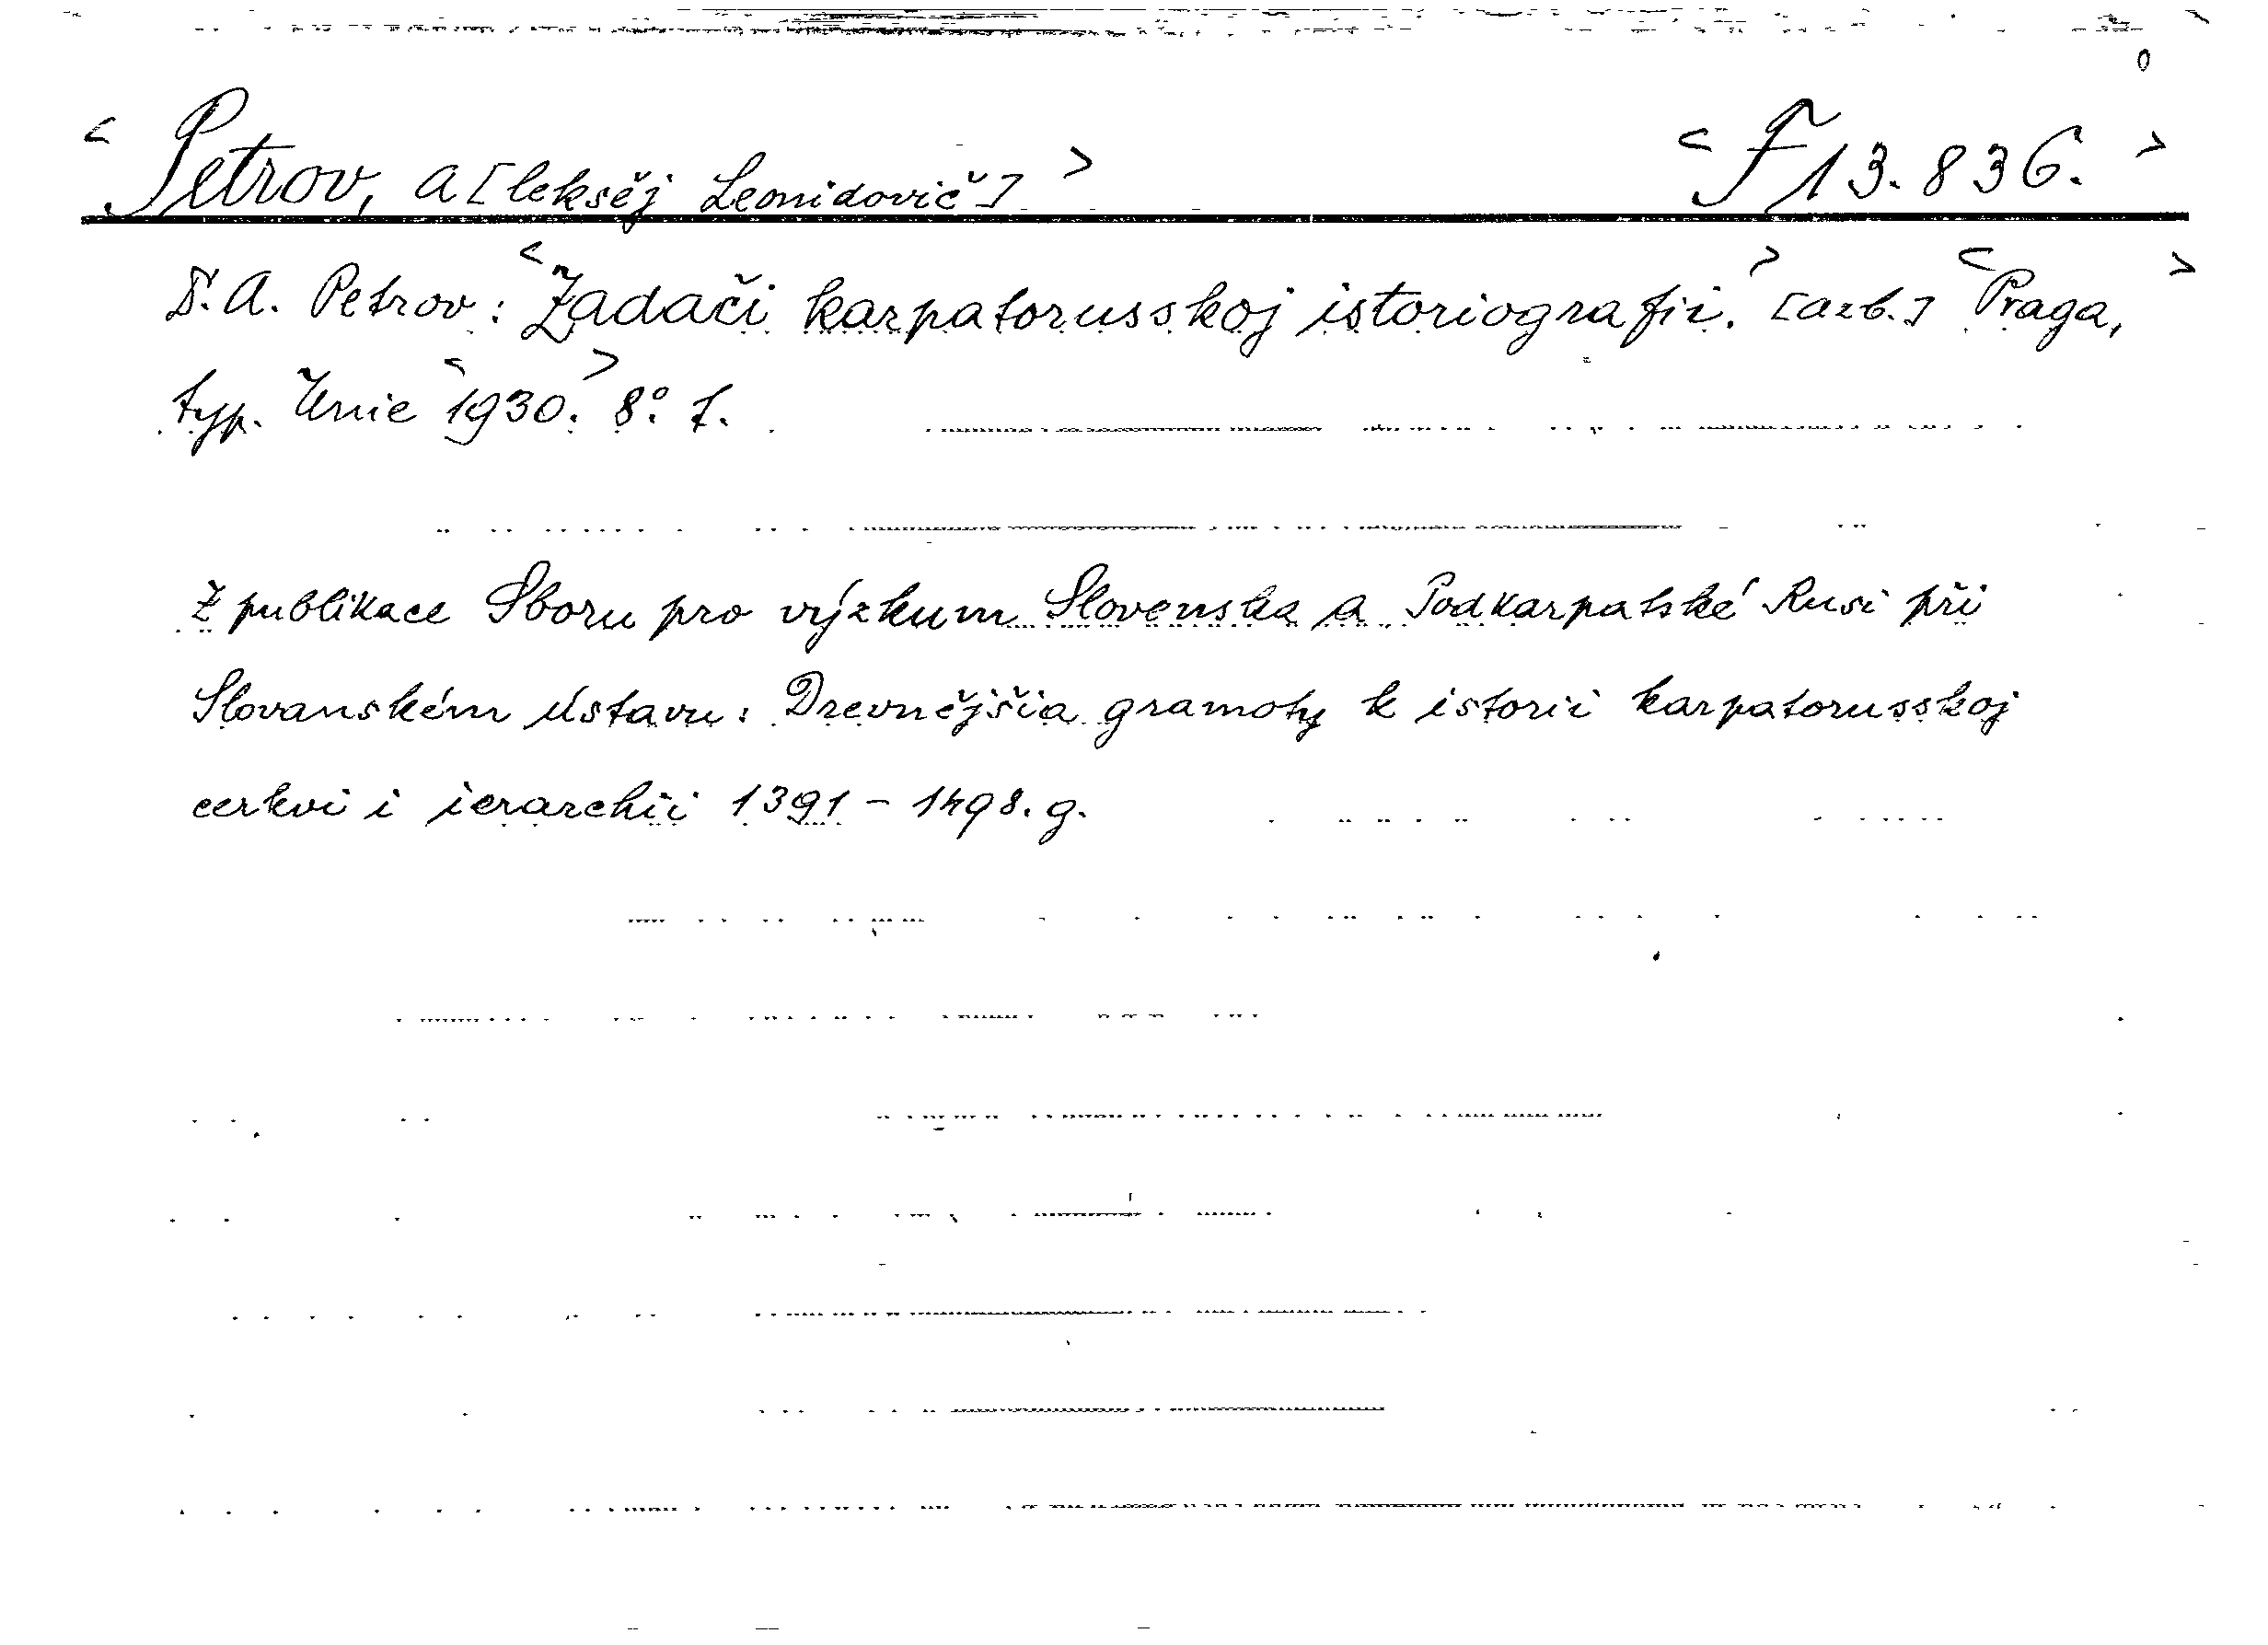 < Petrov, A[leksěj Leonidovič] > < F 13.836. >
A. Petrov: <Zadači karpatorusskoj istoriografii.> [azb.] <Praga,>
typ. Unie <1930.> 8°. 7.
Z publikace Sboru pro výzkum Slovenska a Podkarpatské Rusi při
Slovanském ústavu: Drevnějšia gramoty k istorii karpatorusskoj
cerkvi i ierarchii 1391 - 1498. g.